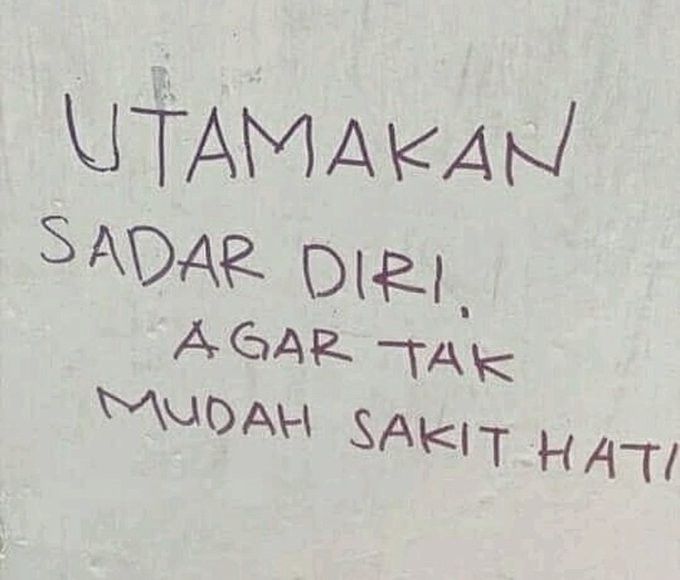 UTAMAKAN
SADAR DIRI.
AGAR TAK
MUDAH SAKIT HATI